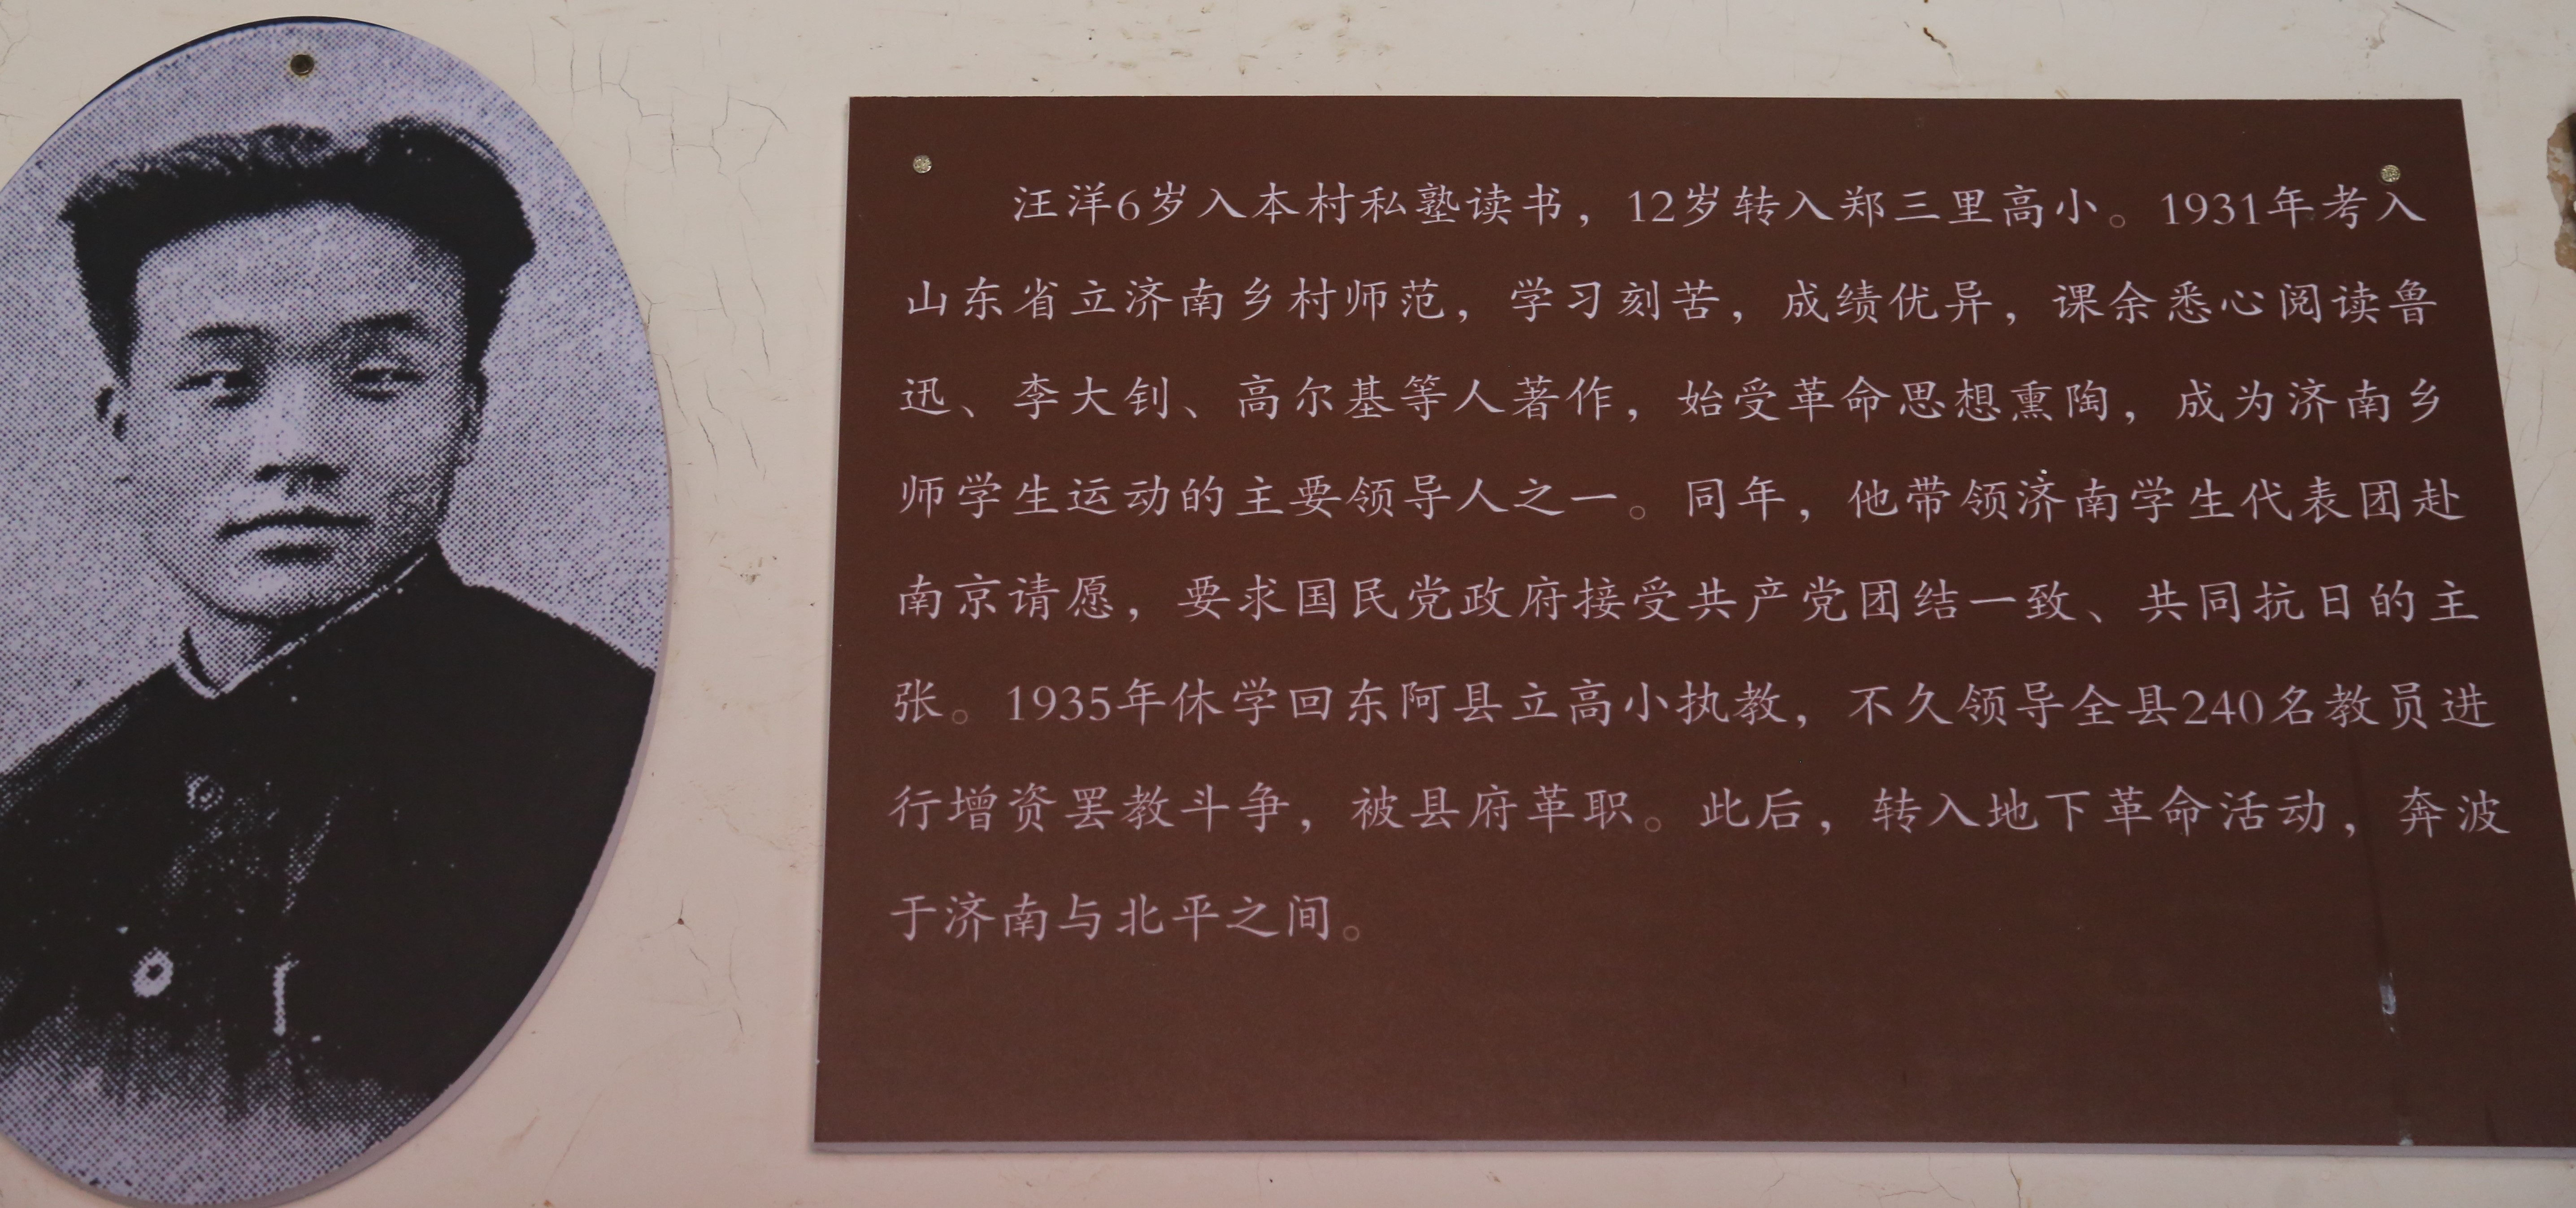 汪洋6岁入本村私塾读书，12岁转入郑三里高小。1931年考入
山东省立济南乡村师范，学习刻苦，成绩优异，课余悉心阅读鲁
迅、李大钊、高尔基等人著作，始受革命思想熏陶，成为济南乡
师学生运动的主要领导人之一。同年，他带领济南学生代表团赴
南京请愿，要求国民党政府接受共产党团结一致、共同抗日的主
张。1935年休学回东阿县立高小执教，不久领导全县240名教员进
行增资罢教斗争，被县府革职。此后，转入地下革命活动，奔波
于济南与北平之间。